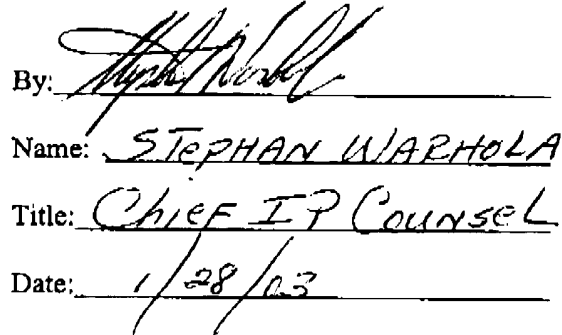 By:
Name: STEPHAN WARHOLA
Title: CHIEF IP COUNSEL
Date: 1/28/03